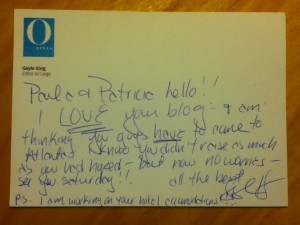 O
OPRAH
Gayle King
Editor At Large
Paula & Patricia hello!!
I LOVE your blog - & am
thinking you guys have to come to
Atlanta! I know you didn't raise as much
as you had hoped - but now no worries -
see you Saturday!! all the best
P.S. I am working on your hotel accomodations!!!